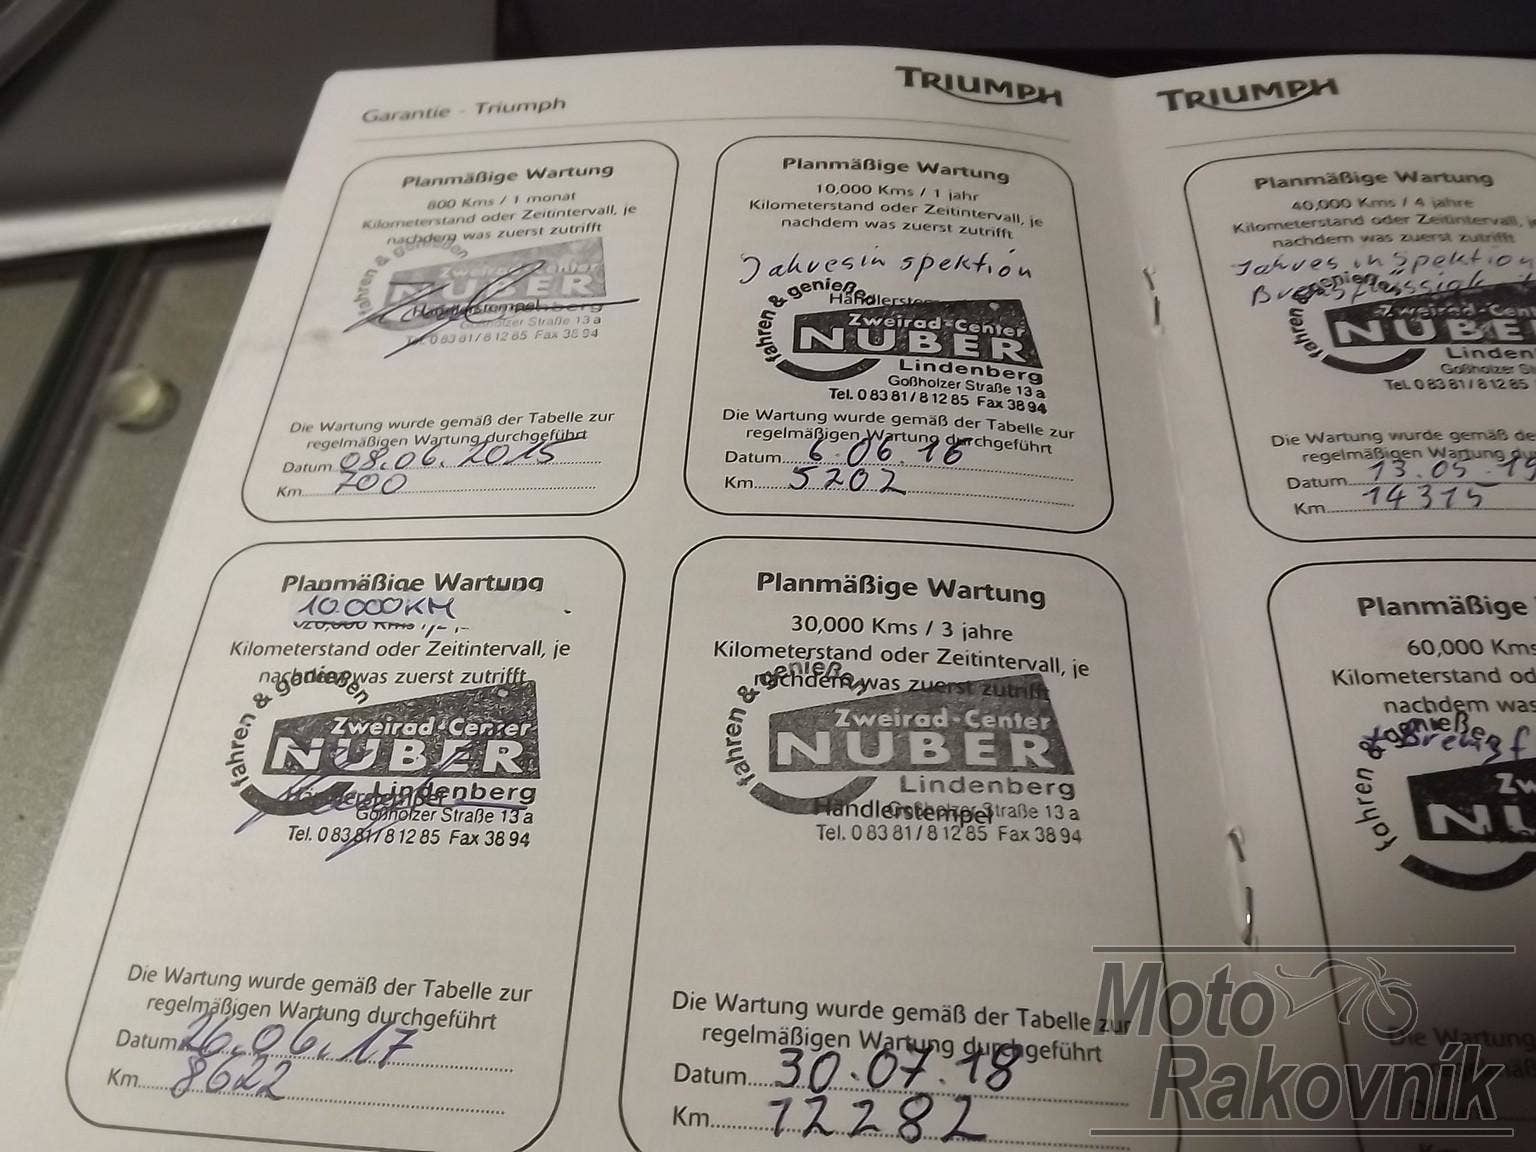 Garantie - Triumph
TRIUMPH
Planmäßige Wartung
800 Kms / 1 monat
Kilometerstand oder Zeitintervall, je
nachdem was zuerst zutrifft
fahren & genießen
Zweirad-Center
NUBER
Händlerstempel
Goßholzer Straße 13 a
Tel. 0 83 81 / 8 12 85 Fax 38 94
Die Wartung wurde gemäß der Tabelle zur
regelmäßigen Wartung durchgeführt
Datum 08.06.2015
Km 700
Planmäßige Wartung
10,000 Kms / 1 jahr
Kilometerstand oder Zeitintervall, je
nachdem was zuerst zutrifft
Jahresinspektion
fahren & genießen
Zweirad-Center
NUBER
Lindenberg
Goßholzer Straße 13 a
Tel. 0 83 81 / 8 12 85 Fax 38 94
Die Wartung wurde gemäß der Tabelle zur
regelmäßigen Wartung durchgeführt
Datum 6.06.16
Km 5202
Planmäßige Wartung
10.000KM
20,000 Kms
Kilometerstand oder Zeitintervall, je
nachdem was zuerst zutrifft
fahren & genießen
Zweirad-Center
NUBER
Lindenberg
Händlerstempel
Goßholzer Straße 13 a
Tel. 0 83 81 / 8 12 85 Fax 38 94
Die Wartung wurde gemäß der Tabelle zur
regelmäßigen Wartung durchgeführt
Datum 26.06.17
Km 8622
Planmäßige Wartung
30,000 Kms / 3 jahre
Kilometerstand oder Zeitintervall, je
nachdem was zuerst zutrifft
fahren & genießen
Zweirad-Center
NUBER
Lindenberg
Händlerstempel
Goßholzer Straße 13 a
Tel. 0 83 81 / 8 12 85 Fax 38 94
Die Wartung wurde gemäß der Tabelle zur
regelmäßigen Wartung durchgeführt
Datum 30.07.18
Km 12282
TRIUMPH
Planmäßige Wartung
40,000 Kms / 4 jahre
Kilometerstand oder Zeitintervall,
nachdem was zuerst zutrifft
Jahresinspektion
fahren
NUBER
Linden
Goßholzer
Tel. 0 83 81 / 8 12 85
Die Wartung wurde gemäß
regelmäßigen Wartung
Datum 13.05.19
Km 14315
Planmäßige
60,000 Kms
Kilometerstand
nachdem was
fahren & genießen
Die Wartung
Moto
Rakovník